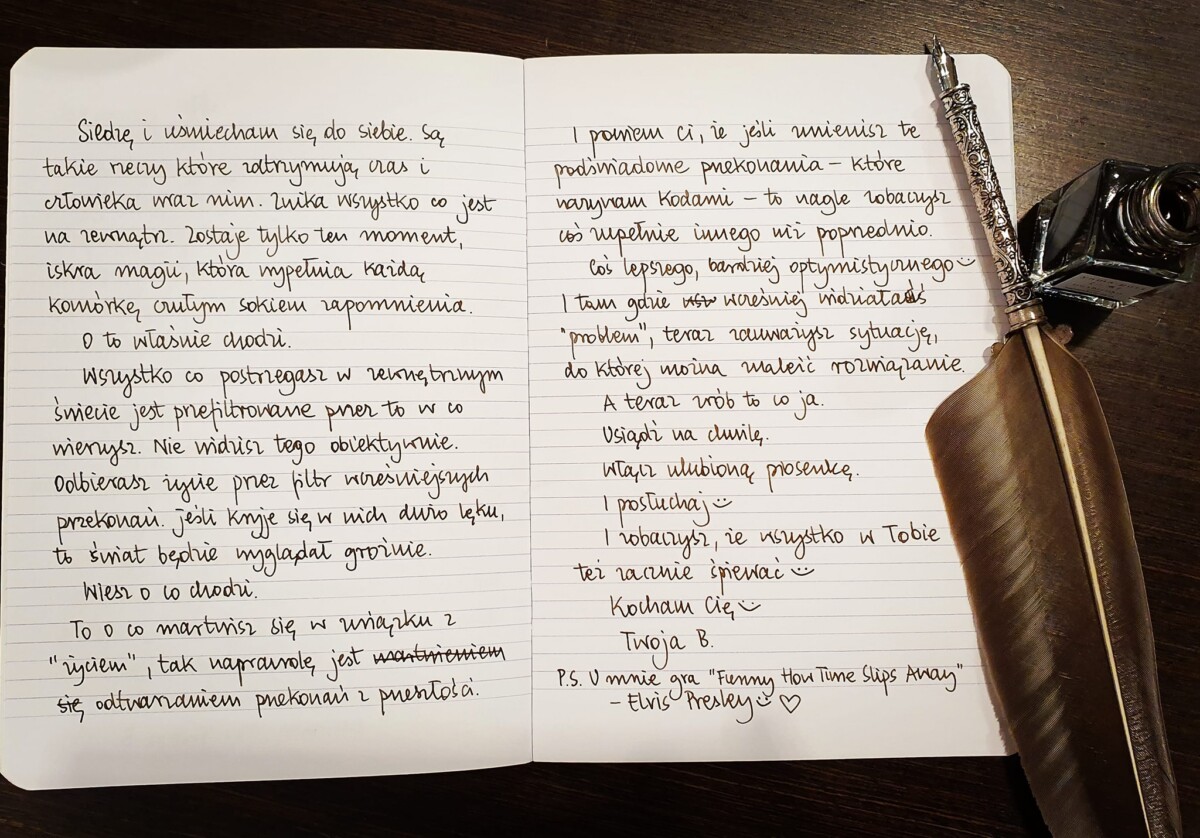 Siedzę i uśmiecham się do siebie. Są
takie rzeczy które zatrzymują czas i
człowieka wraz nim. Znika wszystko co jest
na zewnątrz. Zostaje tylko ten moment,
iskra magii, która wypełnia każdą
komórkę czułym sokiem zapomnienia.
O to właśnie chodzi.
Wszystko co postrzegasz w zewnętrznym
świecie jest przefiltrowane przez to w co
wierzysz. Nie widzisz tego obiektywnie.
Odbierasz życie przez filtr wcześniejszych
przekonań. Jeśli kryje się w nich dużo lęku,
to świat będzie wyglądał groźnie.
Wiesz o co chodzi.
To o co martwisz się w związku z
"życiem", tak naprawdę jest martwieniem
się odtwarzaniem przekonań z przeszłości.
I powiem Ci, że jeśli zmienisz te
podświadome przekonania – które
nazywam Kodami – to nagle zobaczysz
coś zupełnie innego niż poprzednio.
Coś lepszego, bardziej optymistycznego
I tam gdzie wsw wcześniej widziałaś
"problem", teraz zauważysz sytuację,
do której można znaleźć rozwiązanie.
A teraz zrób to co ja.
Usiądź na chwilę.
Włącz ulubioną piosenkę.
I posłuchaj
I zobaczysz, że wszystko w Tobie
też zacznie śpiewać
Kocham Cię
Twoja B.
P.S. U mnie gra "Funny How Time Slips Away"
– Elvis Presley